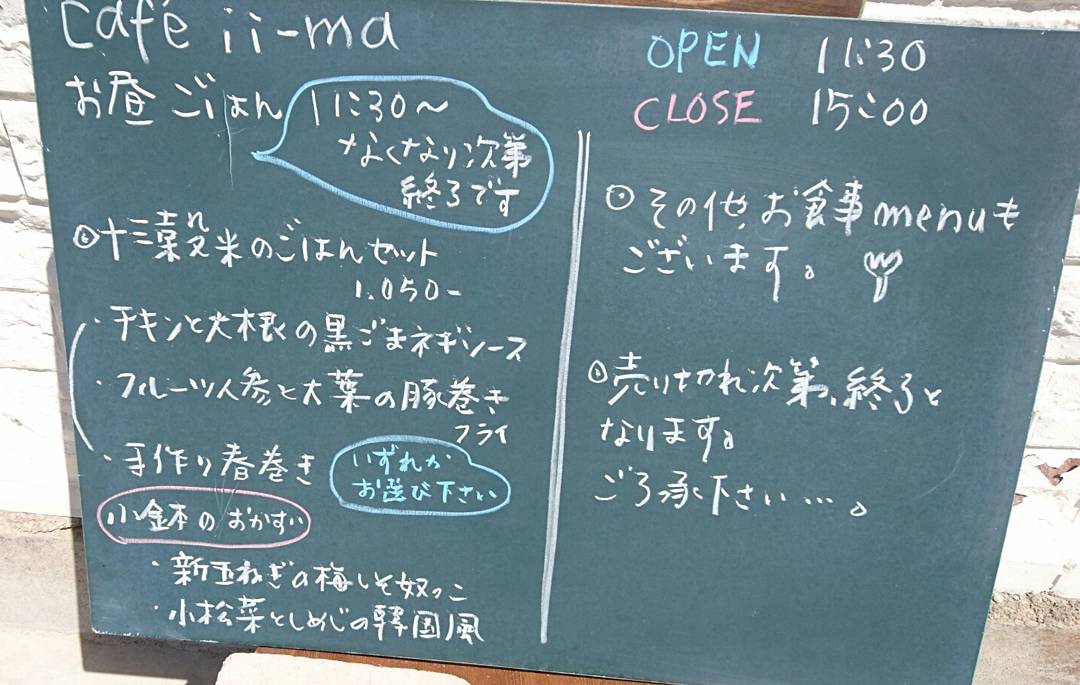 café ii-ma
お昼ごはん
11:30〜
なくなり次第
終了です
十三穀米のごはんセット
1.050-
・チキンと大根の黒ごまネギソース
・フルーツ人参と大葉の豚巻き
フライ
・手作り春巻き
いずれか
お選び下さい
小鉢のおかず
・新玉ねぎの梅しそ奴っこ
・小松菜としめじの韓国風
OPEN 11:30
CLOSE 15:00
その他、お食事menuも
ございます。
売り切れ次第、終了と
なります。
ご了承下さい…。